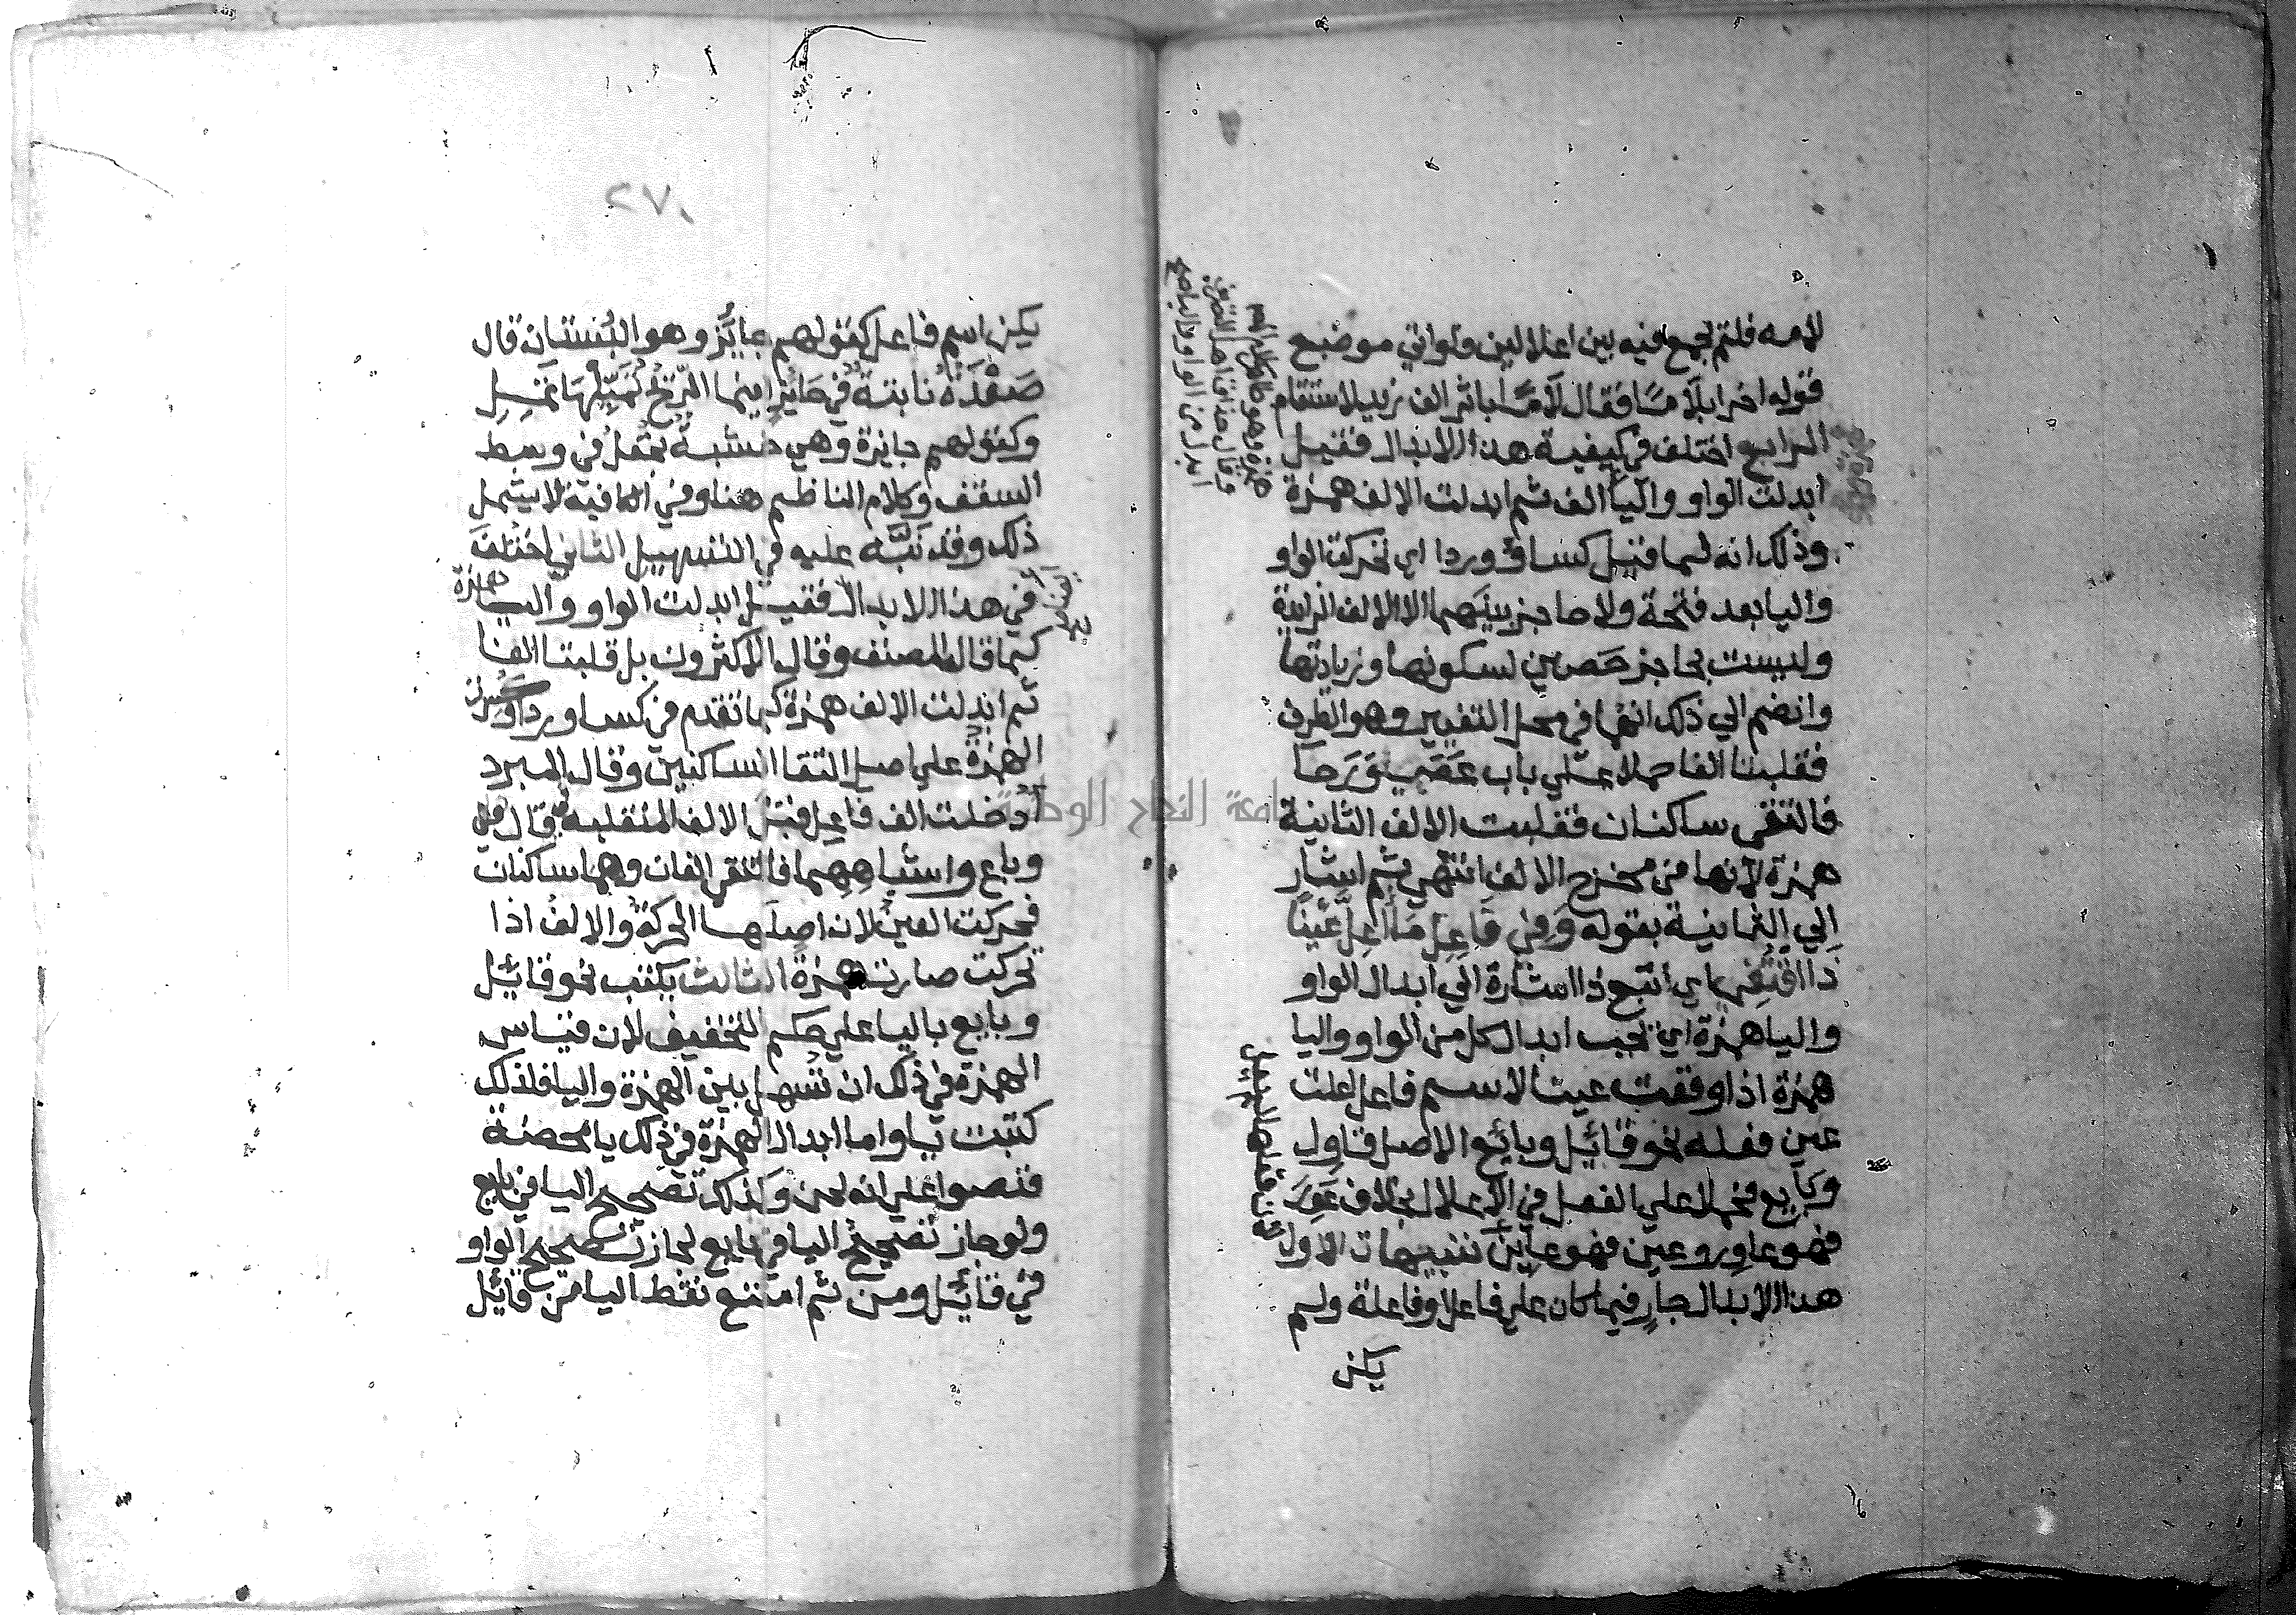 لامه فلم يجمع فيه بين اعلالين ولو اتي موضع
قوله اخرا بلاما فقال لاما باثر الف زيد لاستقام
الرابع اختلف في كيفية هذا الابدال فقيل
ابدلت الواو واليا الف ثم ابدلت الالف همزة
وذلك انه لما قيل كساو وردا اي تحركت الواو
واليا بعد فتحة ولا حاجز بينهما الا الالف الزايدة
وليست بحاجز حصين لسكونها وزيادتها
وانضم الي ذلك انها في محل التغيير وهو الطرف
فقلبنا الفا حملا علي باب عصي ورحا
فالتقي ساكنان فقلبت الالف الثانية
همزة لانها من مخرج الالف انتهي ثم اشار
الي الثمانية بقوله وَفِي فَاعِلِ مَا أُعِلَّ عَيْنًا
ذَا اقْتُفِي اي اتبع ذا اشارة الي ابدال الواو
واليا همزة اي يجب ابدال كل من الواو واليا
همزة اذا وقعت عينا لاسم فاعل اعلت
عين فعله نحو قائل وبائع الاصل قاول
وبايع فحملا علي الفعل في الاعلال بخلاف عور
فهو عاور وعين فهو عاين تنبيهات الاول
هذا الابدال جارٍ فيما كان علي فاعل او فاعلة ولم
يكن
٢٧٠
يكن اسم فاعل كقولهم جايز وهو البستان قال
صَعْدَةٌ نابتة في حائر اينما الريح تميلها تمل
وكقولهم جايزة وهي خشبة تجعل في وسط
السقف وكلام الناظم هنا وفي الكافية لا يشمل
ذلك وقد نبه عليه في التسهيل الثاني اختلف
في هذا الابدال فقيل ابدلت الواو واليا همزة
كما قال المصنف وقال الاكثرون بل قلبتا الفا
ثم ابدلت الالف همزة كما تقدم في كسا وردا وكسرت
الهمزة علي اصل التقا الساكنين وقال المبرد
ادخلت الف فاعل قبل الالف المنقلبة في قال
وباع واشباههما فالتقي الفان وهما ساكنان
فحركت العين لان اصلها الحركة والالف اذا
تحركت صارت همزة الثالث يكتب نحو قائل
وبايع باليا علي حكم التخفيف لان قياس
الهمزة في ذلك ان تسهل بين الهمزة واليا فلذلك
كتبت يا واما ابدال الهمزة في ذلك يا محضة
فنصوا علي انه لحن وكذلك تصحيح اليا في بايع
ولو جاز تصحيح اليا في بايع لجاز تصحيح الواو
في قائل ومن ثم امتنع نقط اليا من قائل